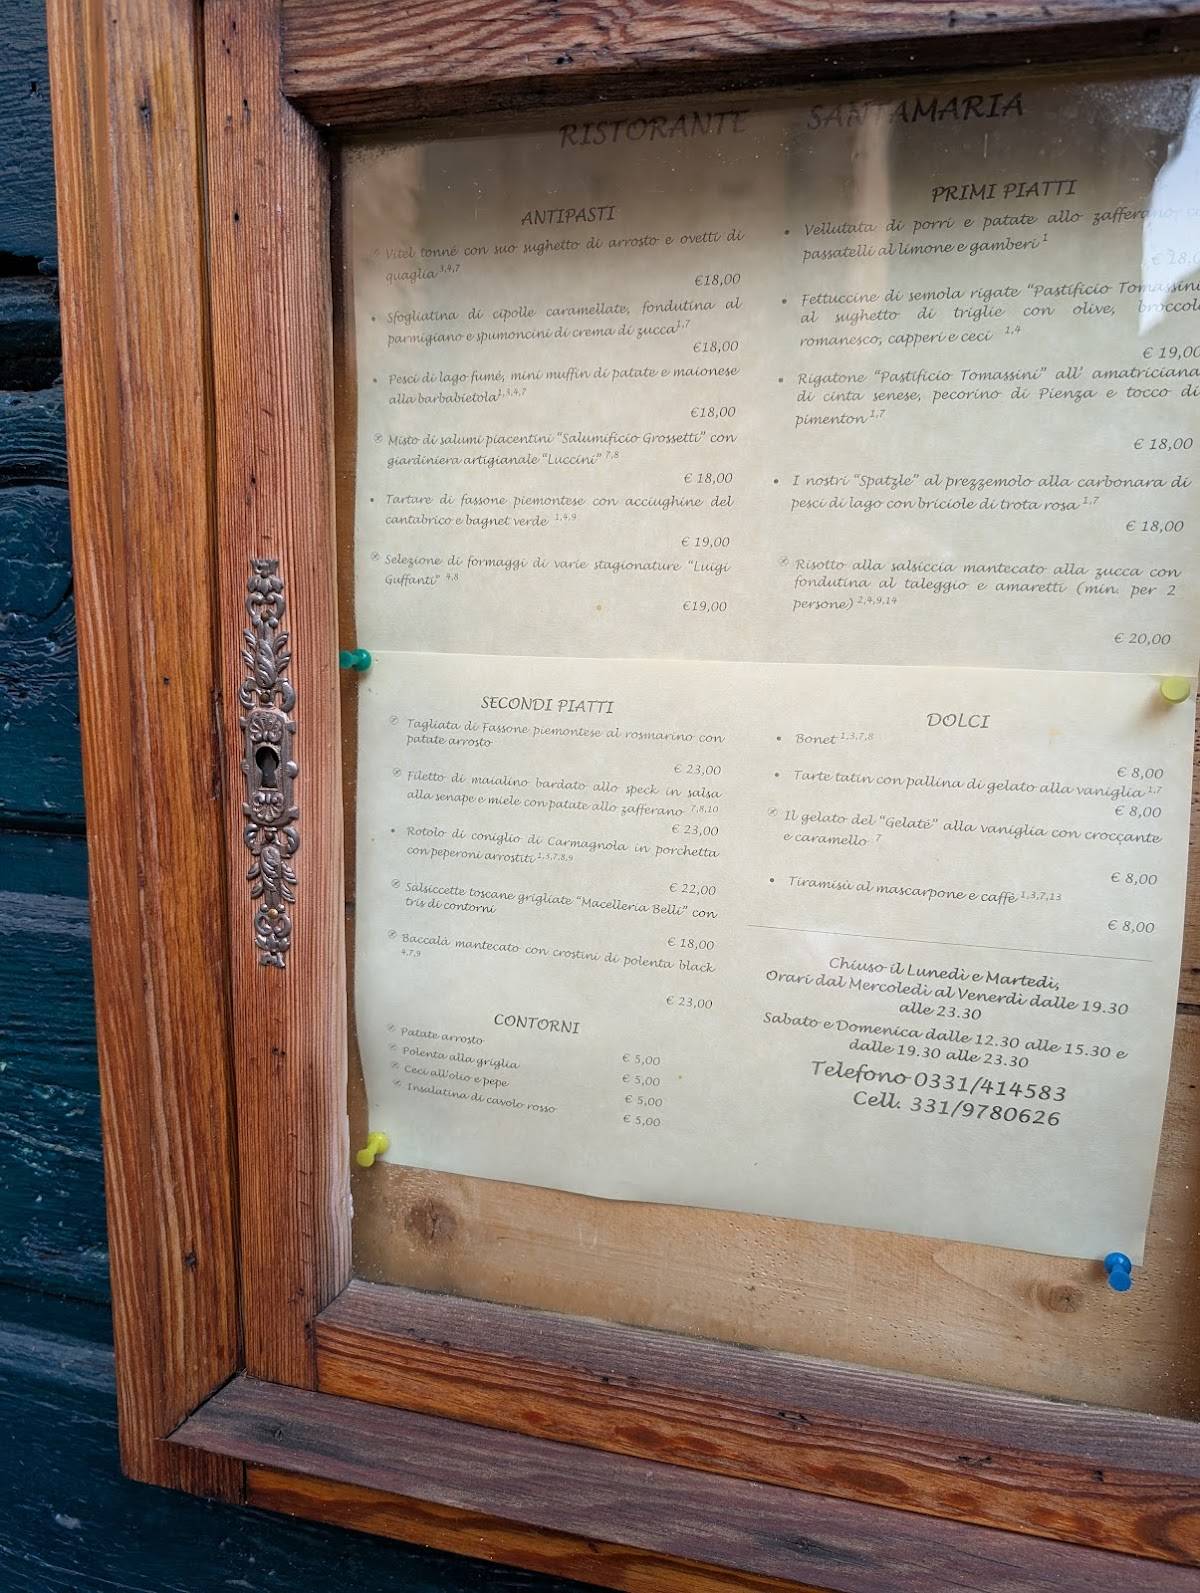 RISTORANTE SANTAMARIA
ANTIPASTI
Vitel tonné con suo sughetto di arrosto e ovetti di
quaglia 3,4,7
€18,00
• Sfogliatina di cipolle caramellate, fondutina al
parmigiano e spumoncini di crema di zucca 1,7
€18,00
• Pesci di lago fumé, mini muffin di patate e maionese
alla barbabietola 1,3,4,7
€18,00
Misto di salumi piacentini "Salumificio Grossetti" con
giardiniera artigianale "Luccini" 7,8
€ 18,00
• Tartare di fassone piemontese con acciughine del
cantabrico e bagnet verde 1,4,9
€ 19,00
Selezione di formaggi di varie stagionature "Luigi
Guffanti" 4,8
€19,00
PRIMI PIATTI
• Vellutata di porri e patate allo zafferano
passatelli al limone e gamberi 1
€ 18,0
• Fettuccine di semola rigate "Pastificio Tomassini
al sughetto di triglie con olive, broccol
romanesco, capperi e ceci 1,4
€ 19,00
• Rigatone "Pastificio Tomassini" all' amatriciana
di cinta senese, pecorino di Pienza e tocco di
pimenton 1,7
€ 18,00
• I nostri "Spatzle" al prezzemolo alla carbonara di
pesci di lago con briciole di trota rosa 1,7
€ 18,00
Risotto alla salsiccia mantecato alla zucca con
fondutina al taleggio e amaretti (min. per 2
persone) 2,4,9,14
€ 20,00
SECONDI PIATTI
Tagliata di Fassone piemontese al rosmarino con
patate arrosto
€ 23,00
Filetto di maialino bardato allo speck in salsa
alla senape e miele con patate allo zafferano 7,8,10
€ 23,00
• Rotolo di coniglio di Carmagnola in porchetta
con peperoni arrostiti 1,5,7,8,9
€ 22,00
Salsiccette toscane grigliate "Macelleria Belli" con
tris di contorni
€ 18,00
Baccalà mantecato con crostini di polenta black
4,7,9
€ 23,00
CONTORNI
Patate arrosto € 5,00
Polenta alla griglia € 5,00
Ceci all'olio e pepe € 5,00
Insalatina di cavolo rosso € 5,00
DOLCI
• Bonet 1,3,7,8
€ 8,00
• Tarte tatin con pallina di gelato alla vaniglia 1,7
€ 8,00
Il gelato del "Gelatè" alla vaniglia con croccante
e caramello 7
€ 8,00
• Tiramisù al mascarpone e caffè 1,3,7,13
€ 8,00
Chiuso il Lunedì e Martedì,
Orari dal Mercoledì al Venerdì dalle 19.30
alle 23.30
Sabato e Domenica dalle 12.30 alle 15.30 e
dalle 19.30 alle 23.30
Telefono 0331/414583
Cell. 331/9780626